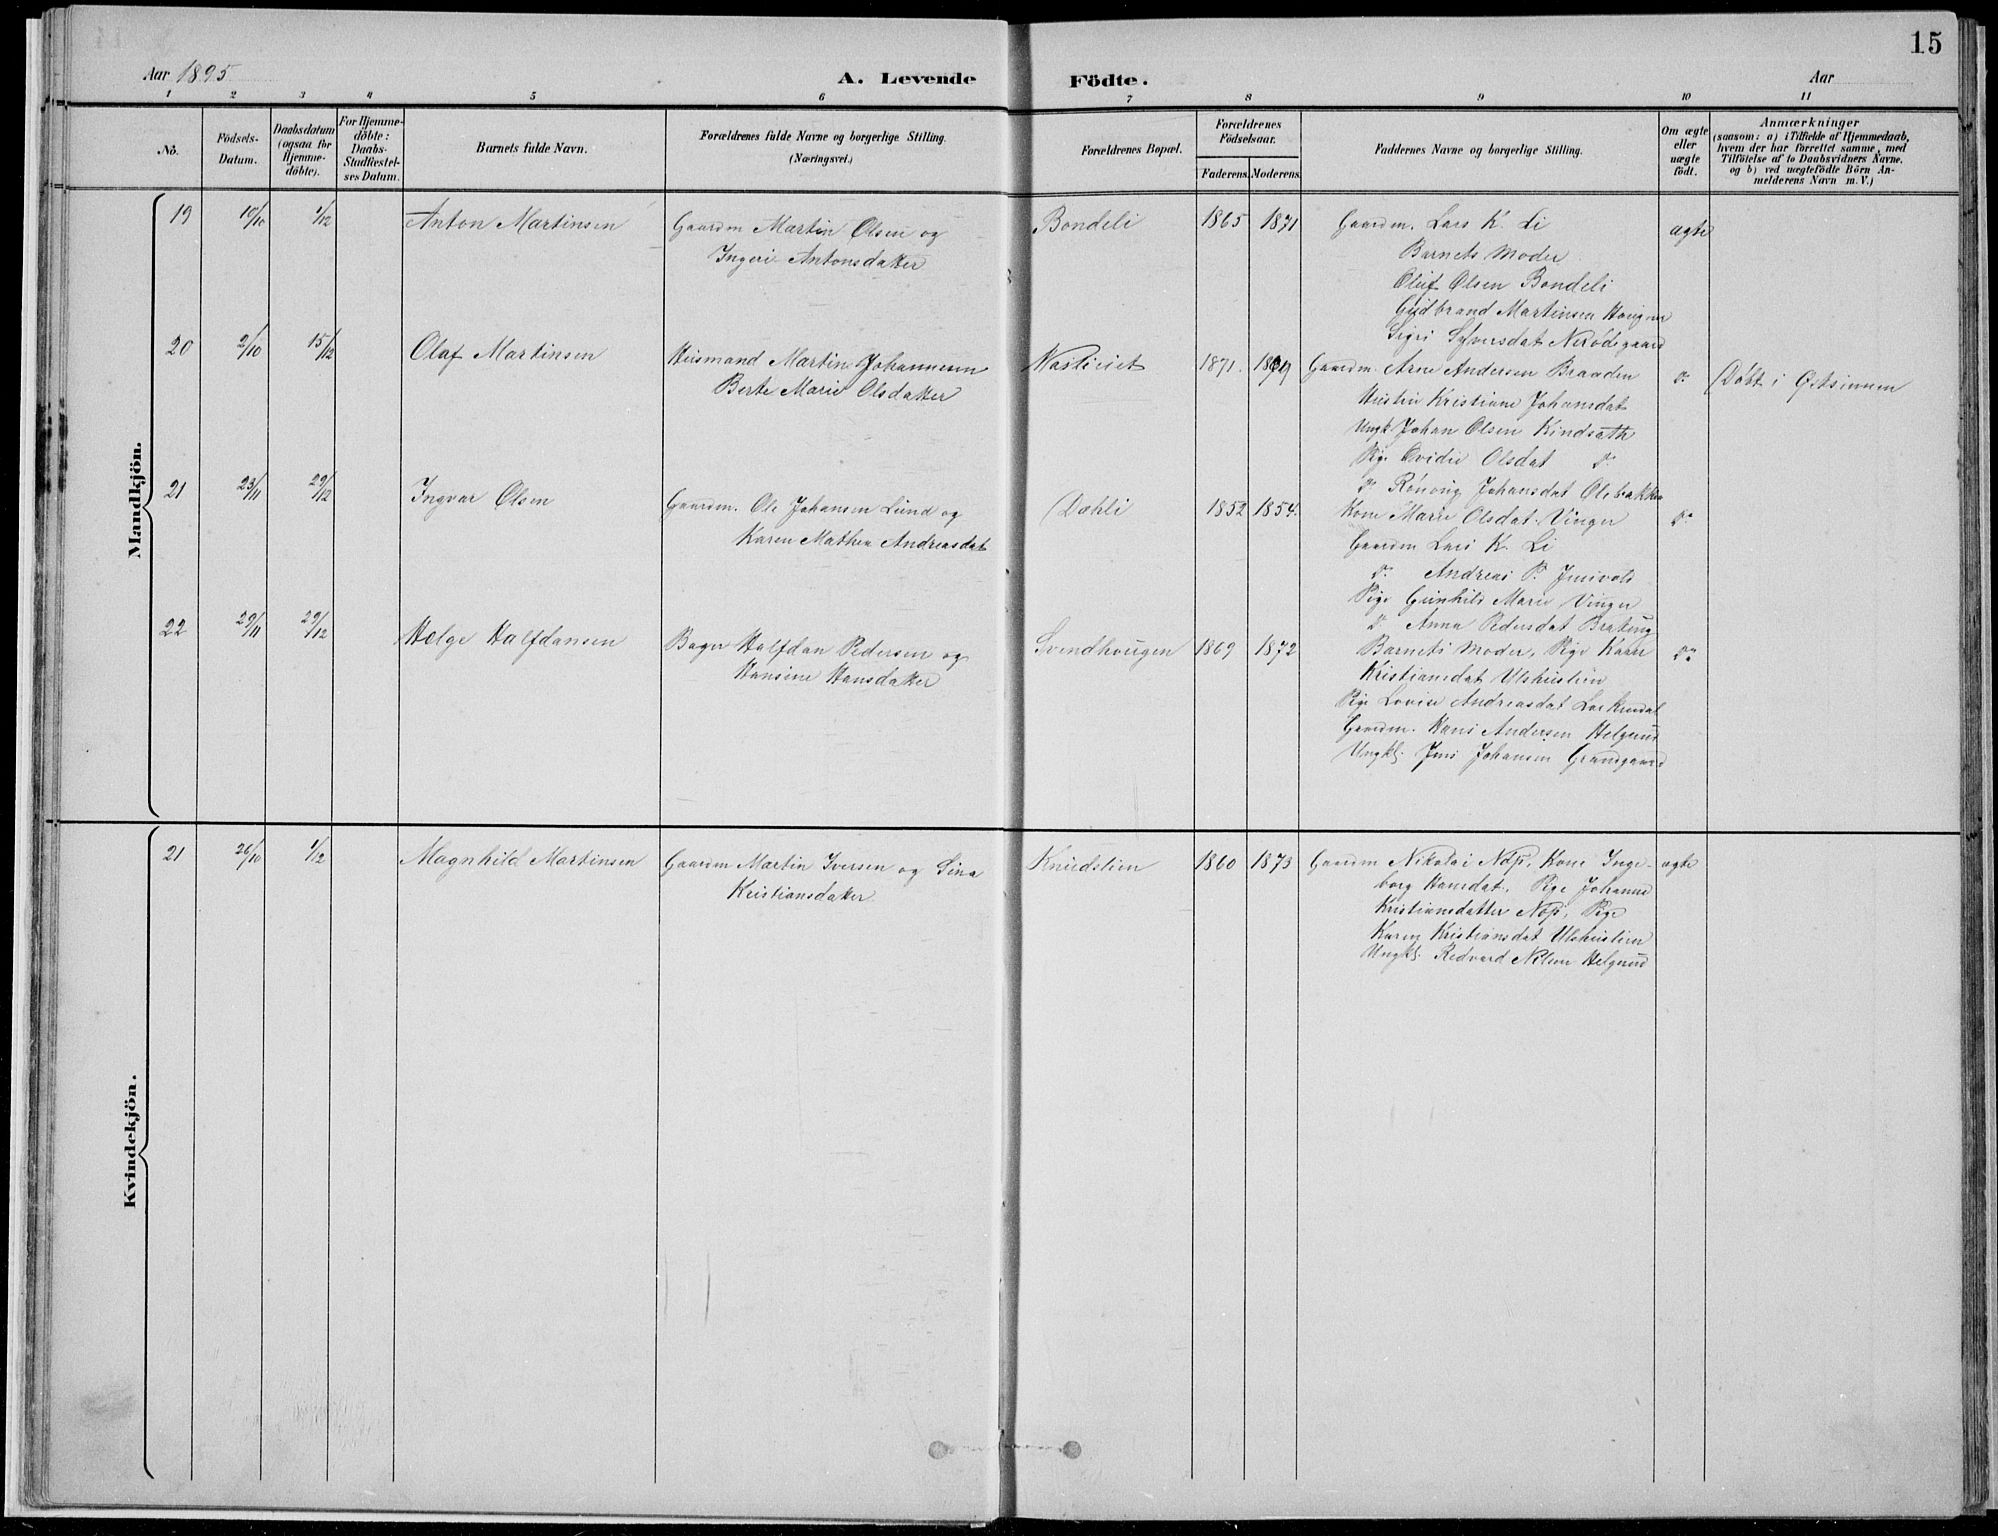 15
Aar 1895
A. Levende
Födte.
Aar
1 2 3 4 5 6 7 8 9 10 11
No.
Födsels-
Datum.
Daabsdatum
(ogsaa for
Hjemme-
döbte).
For Hjemme-
döbte:
Daabs-
Stadfæstel-
ses Datum.
Barnets fulde Navn.
Forældrenes fulde Navne og borgerlige Stilling.
(Næringsvei.)
Forældrenes Bopæl.
Forældrenes
Födselsaar.
Faderens. Moderens.
Faddernes Navne og borgerlige Stilling.
Om ægte
eller
uægte
födt.
Anmærkninger
(saasom: a) i Tilfælde af Hjemmedaab,
hvem der har forrettet samme, med
Tilföielse af to Daabsvidners Navne.
og b) ved uægtefödte Börn An-
melderens Navn m. V.)
Mandkjön.
19 10/10 1/12 Anton Martinsen
Gaardm Martin Olsen og
Ingeri Antonsdatter
Bondeli 1865 1871
Gaardm. Lars K. Li
Barnets Moder
Oluf Olsen Bondeli
Gudbrand Martinsen
Sigri Syversdat
ægte
20 2/10 15/12 Olaf Martinsen
Husmand Martin Johannesen
Berte Marie Olsdatter
1871.
Gaardm. Arne Andersen Braaden
Hustru Kristiane Johansdat
Ungk. Johan Olsen Kindsæth
Pige Olsdat Do
Do Rönoug Johansdat Olebakken
Do
Döbt i Östsinnen
21 23/11 29/12 Ingvar Olsen
Gaardm. Ole Johansen Lund og
Karen Mathea Andreasdat
Dæhli 1852 1854.
Kone Marie Olsdat. Vinger
Gaardm Lars K. Li
Do Andreas P.
Pige Gunhild Marie Vinger
Do Anna Pedersdat
Do
22 29/11 29/12 Helge Halfdansen
Bager Halfdan Pedersen og
Hansine Hansdatter
Svendhougen 1869 1872
Barnets Moder, Pige Karen
Kristiansdat Ulshustien
Pige Lovise Andreasdat
Gaardm. Hans Andersen Helgund
Ungkl. Jens Johansen Grandgaard
Do
Kvindekjön.
21 26/10 1/12 Magnhild Martinsen
Gaardm Martin Iversen og Sina
Kristiansdatter
Knudslien 1860 1873
Gaardm Nikolai Nöp, Kone Inge-
borg Hansdat, Pige Johanne
Kristiansdatter Nöp, Pige
Karen Kristiansdat Ulshustien
Ungkl. Redvard Nilsen Helgund
ægte